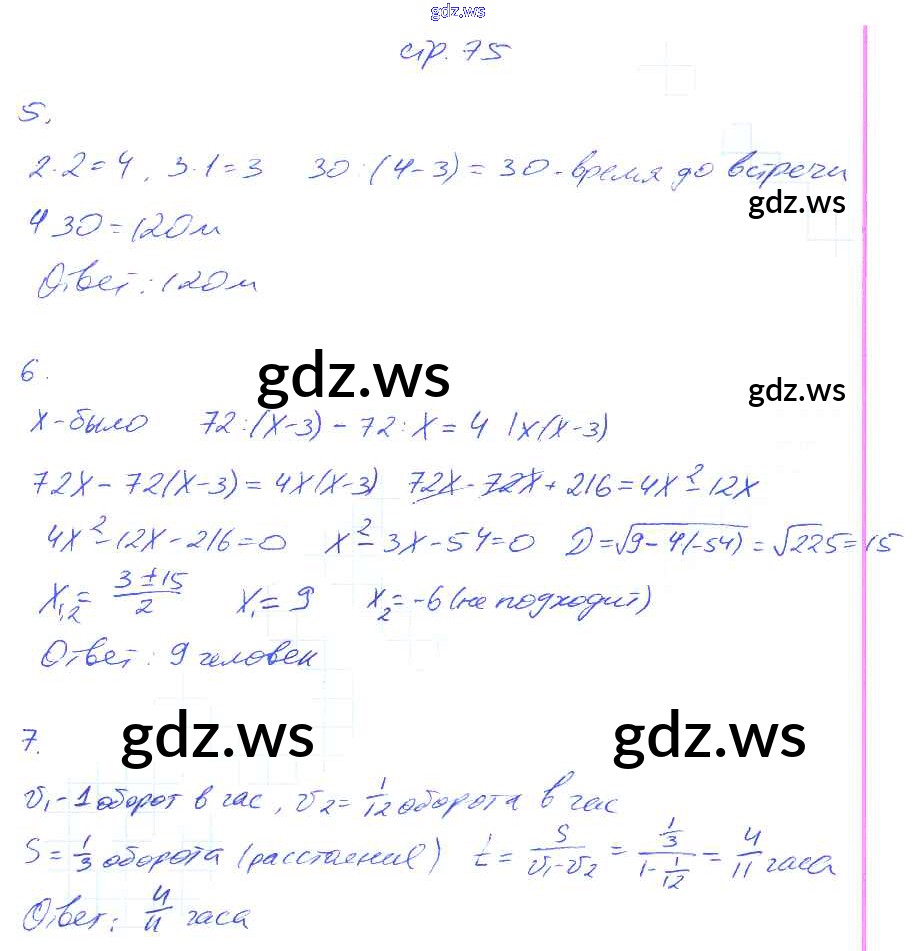 gdz.ws
стр. 75
5.
2·2=4, 3·1=3 30:(4-3)=30-время до встречи
gdz.ws
4 30=120м
Ответ: 120м
6.
gdz.ws
gdz.ws
х-было 72:(х-3)-72:х=4 |х(х-3)
72х-72(х-3)=4х(х-3) 72х-72х+216=4х²-12х
4х²-12х-216=0 х²-3х-54=0 D=√9-4(-54)=√225=15
х₁,₂=(3±15)/2 х₁=9 х₂=-6 (не подходит)
Ответ: 9 человек
7.
gdz.ws gdz.ws
v₁-1 оборот в час, v₂=1/12 оборота в час
S=1/3 оборота (расстояние) t=S/(v₁-v₂)=(1/3)/(1-1/12)=4/11 часа
Ответ: 4/11 часа